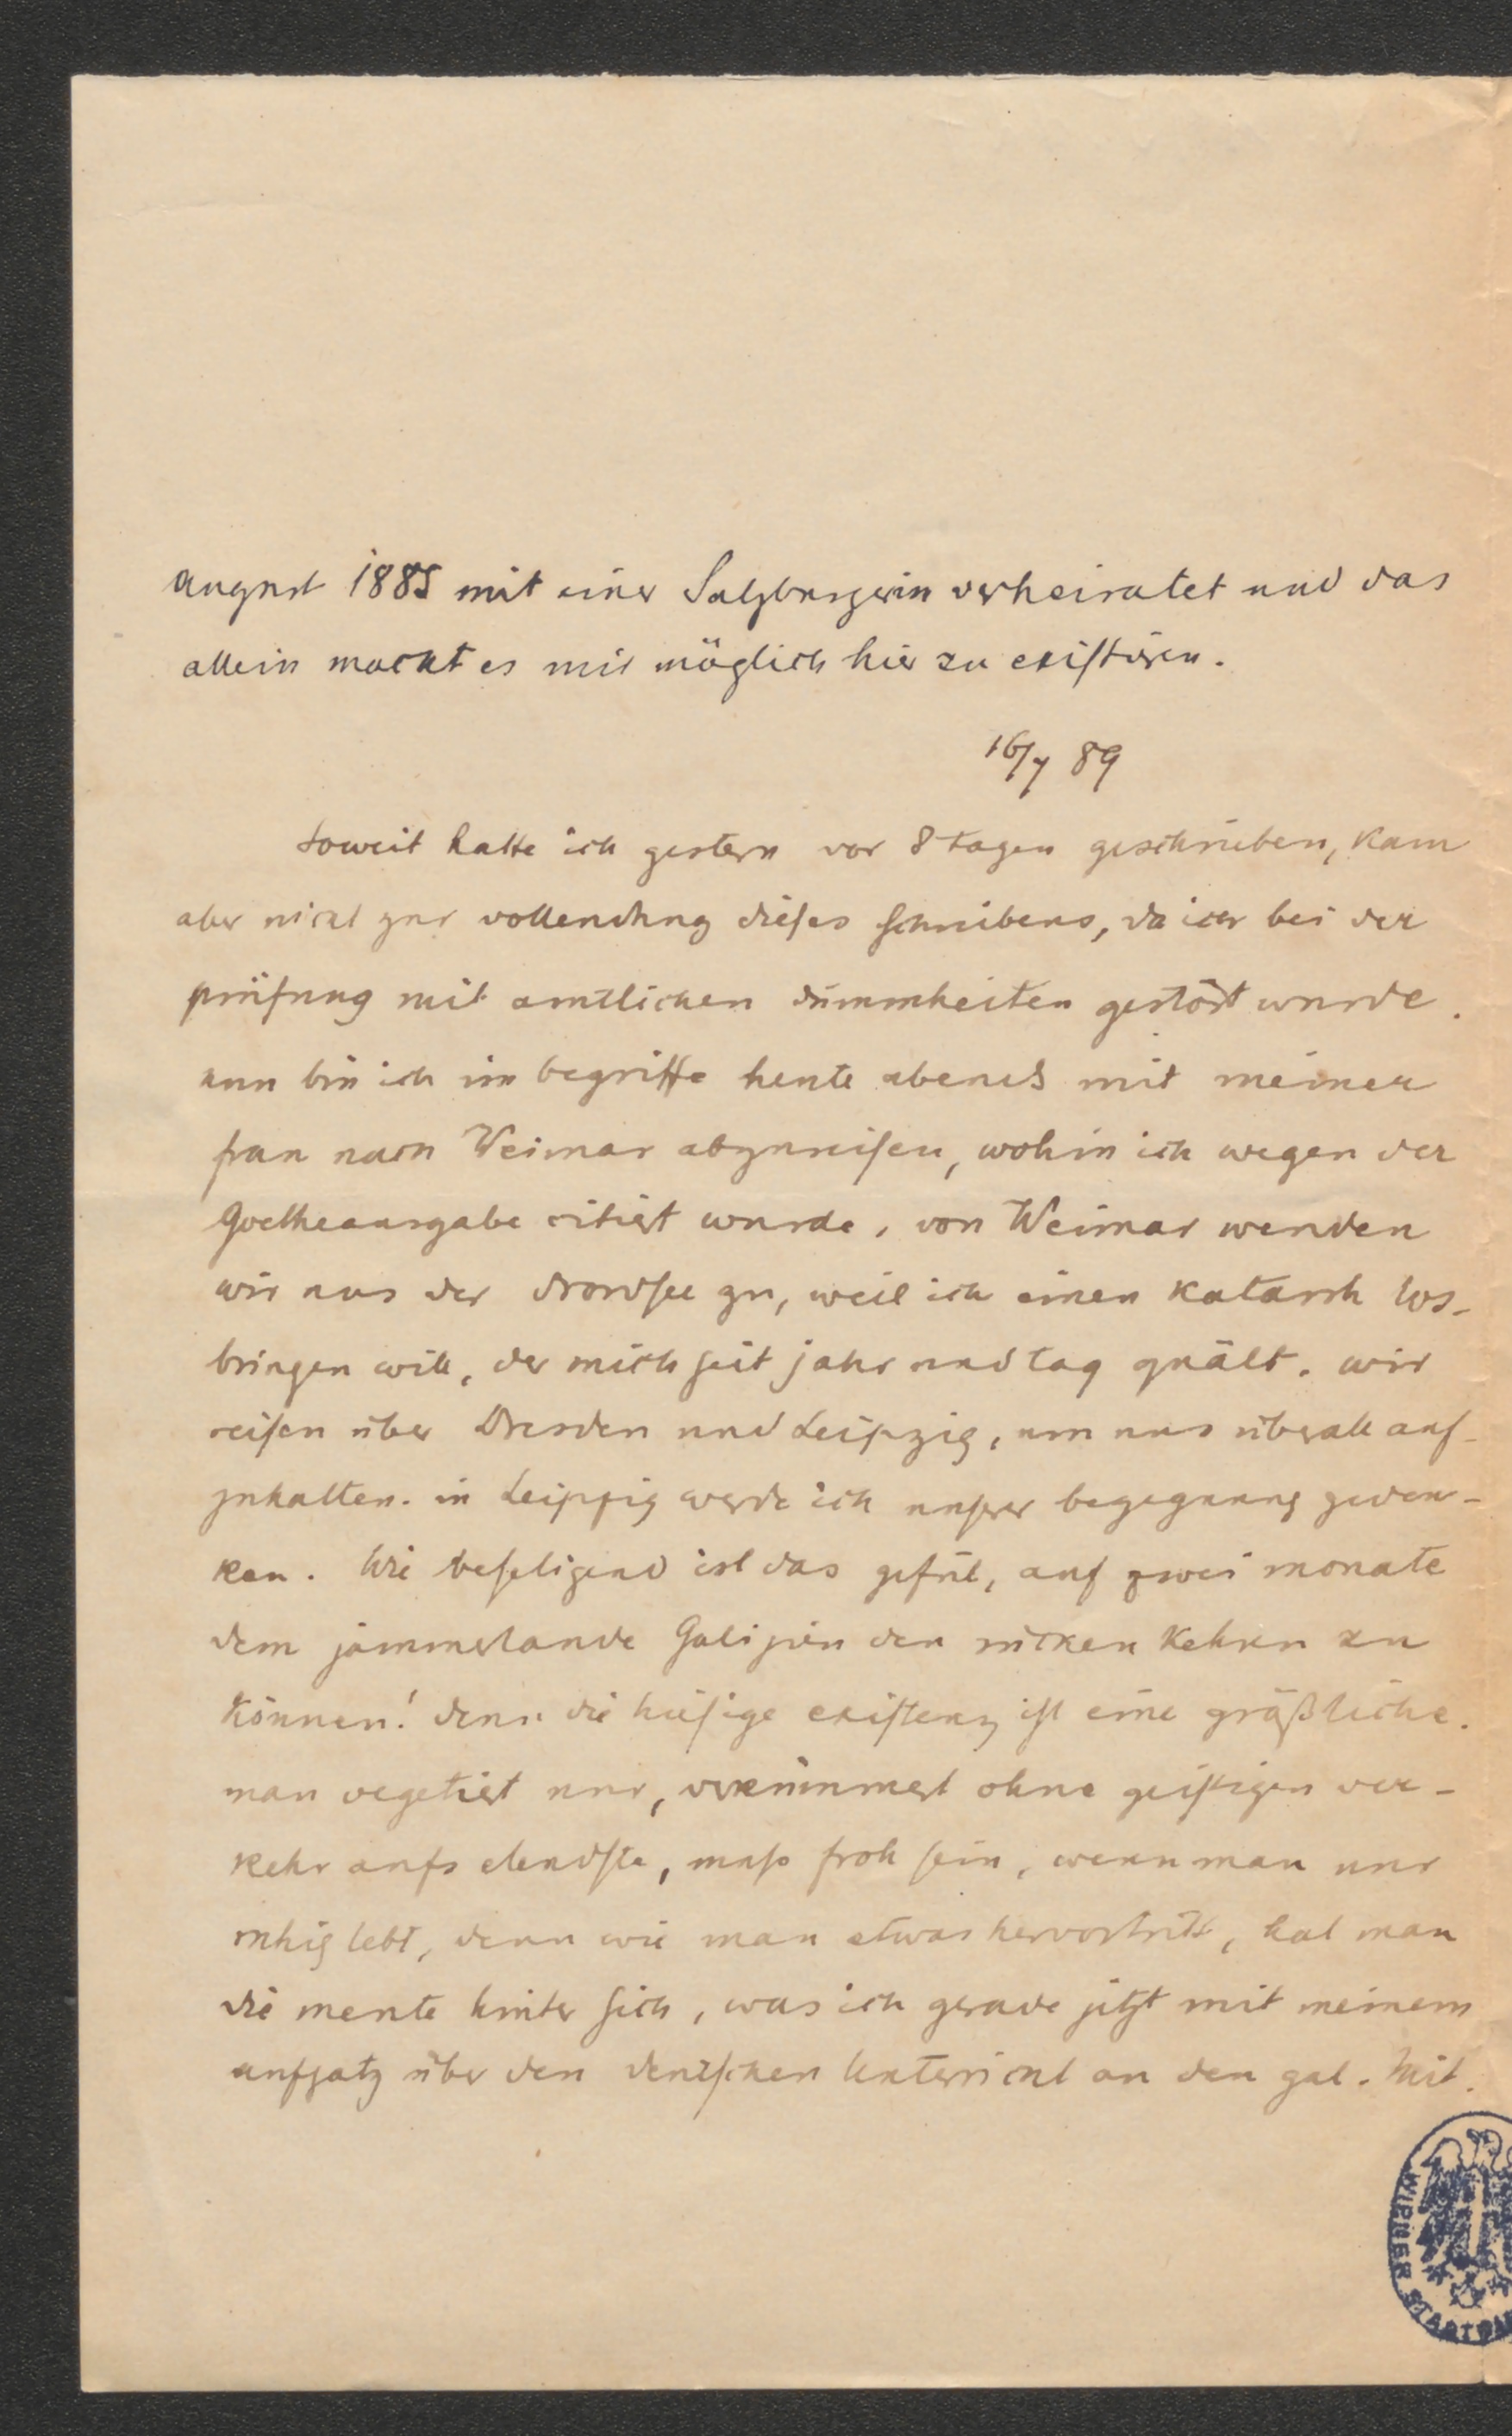 august 1885 mit einer Salzburgerin verheiratet und das
allein macht es mir möglich hier zu existiren.
16/7 89
soweit hatte ich gestern vor 8 tagen geschrieben, kam
aber nicht zur vollendung dieses schreibens, da ich bei der
prüfung mit amtlichen dummheiten gestört wurde.
nun bin ich im begriffe heute abends mit meiner
frau nach Weimar abzureisen, wohin ich wegen der
Goetheausgabe citiert wurde, von Weimar wenden
wir uns der Nordsee zu, weil ich einen katarrh los-
bringen will, der mich seit jahr und tag quält. wir
reisen über Dresden und Leipzig, um uns überall auf-
zuhalten. in Leipzig werde ich unserer begegnung geden-
ken. Wie beseligend ist das gefül, auf zwei monate
dem jammerlande Galizien den rücken kehren zu
können! denn die hiesige existenz ist eine gräßliche.
man vegetiert nur, verkümmert ohne geistigen ver-
kehr aufs elendste, muss froh sein, wenn man nur
ruhig lebt, denn wie man etwas hervortritt, hat man
die meute hinter sich, was ich gerade jetzt mit meinem
aufsatz über den deutschen Unterricht an den gal. Mit.
WIENER STADT